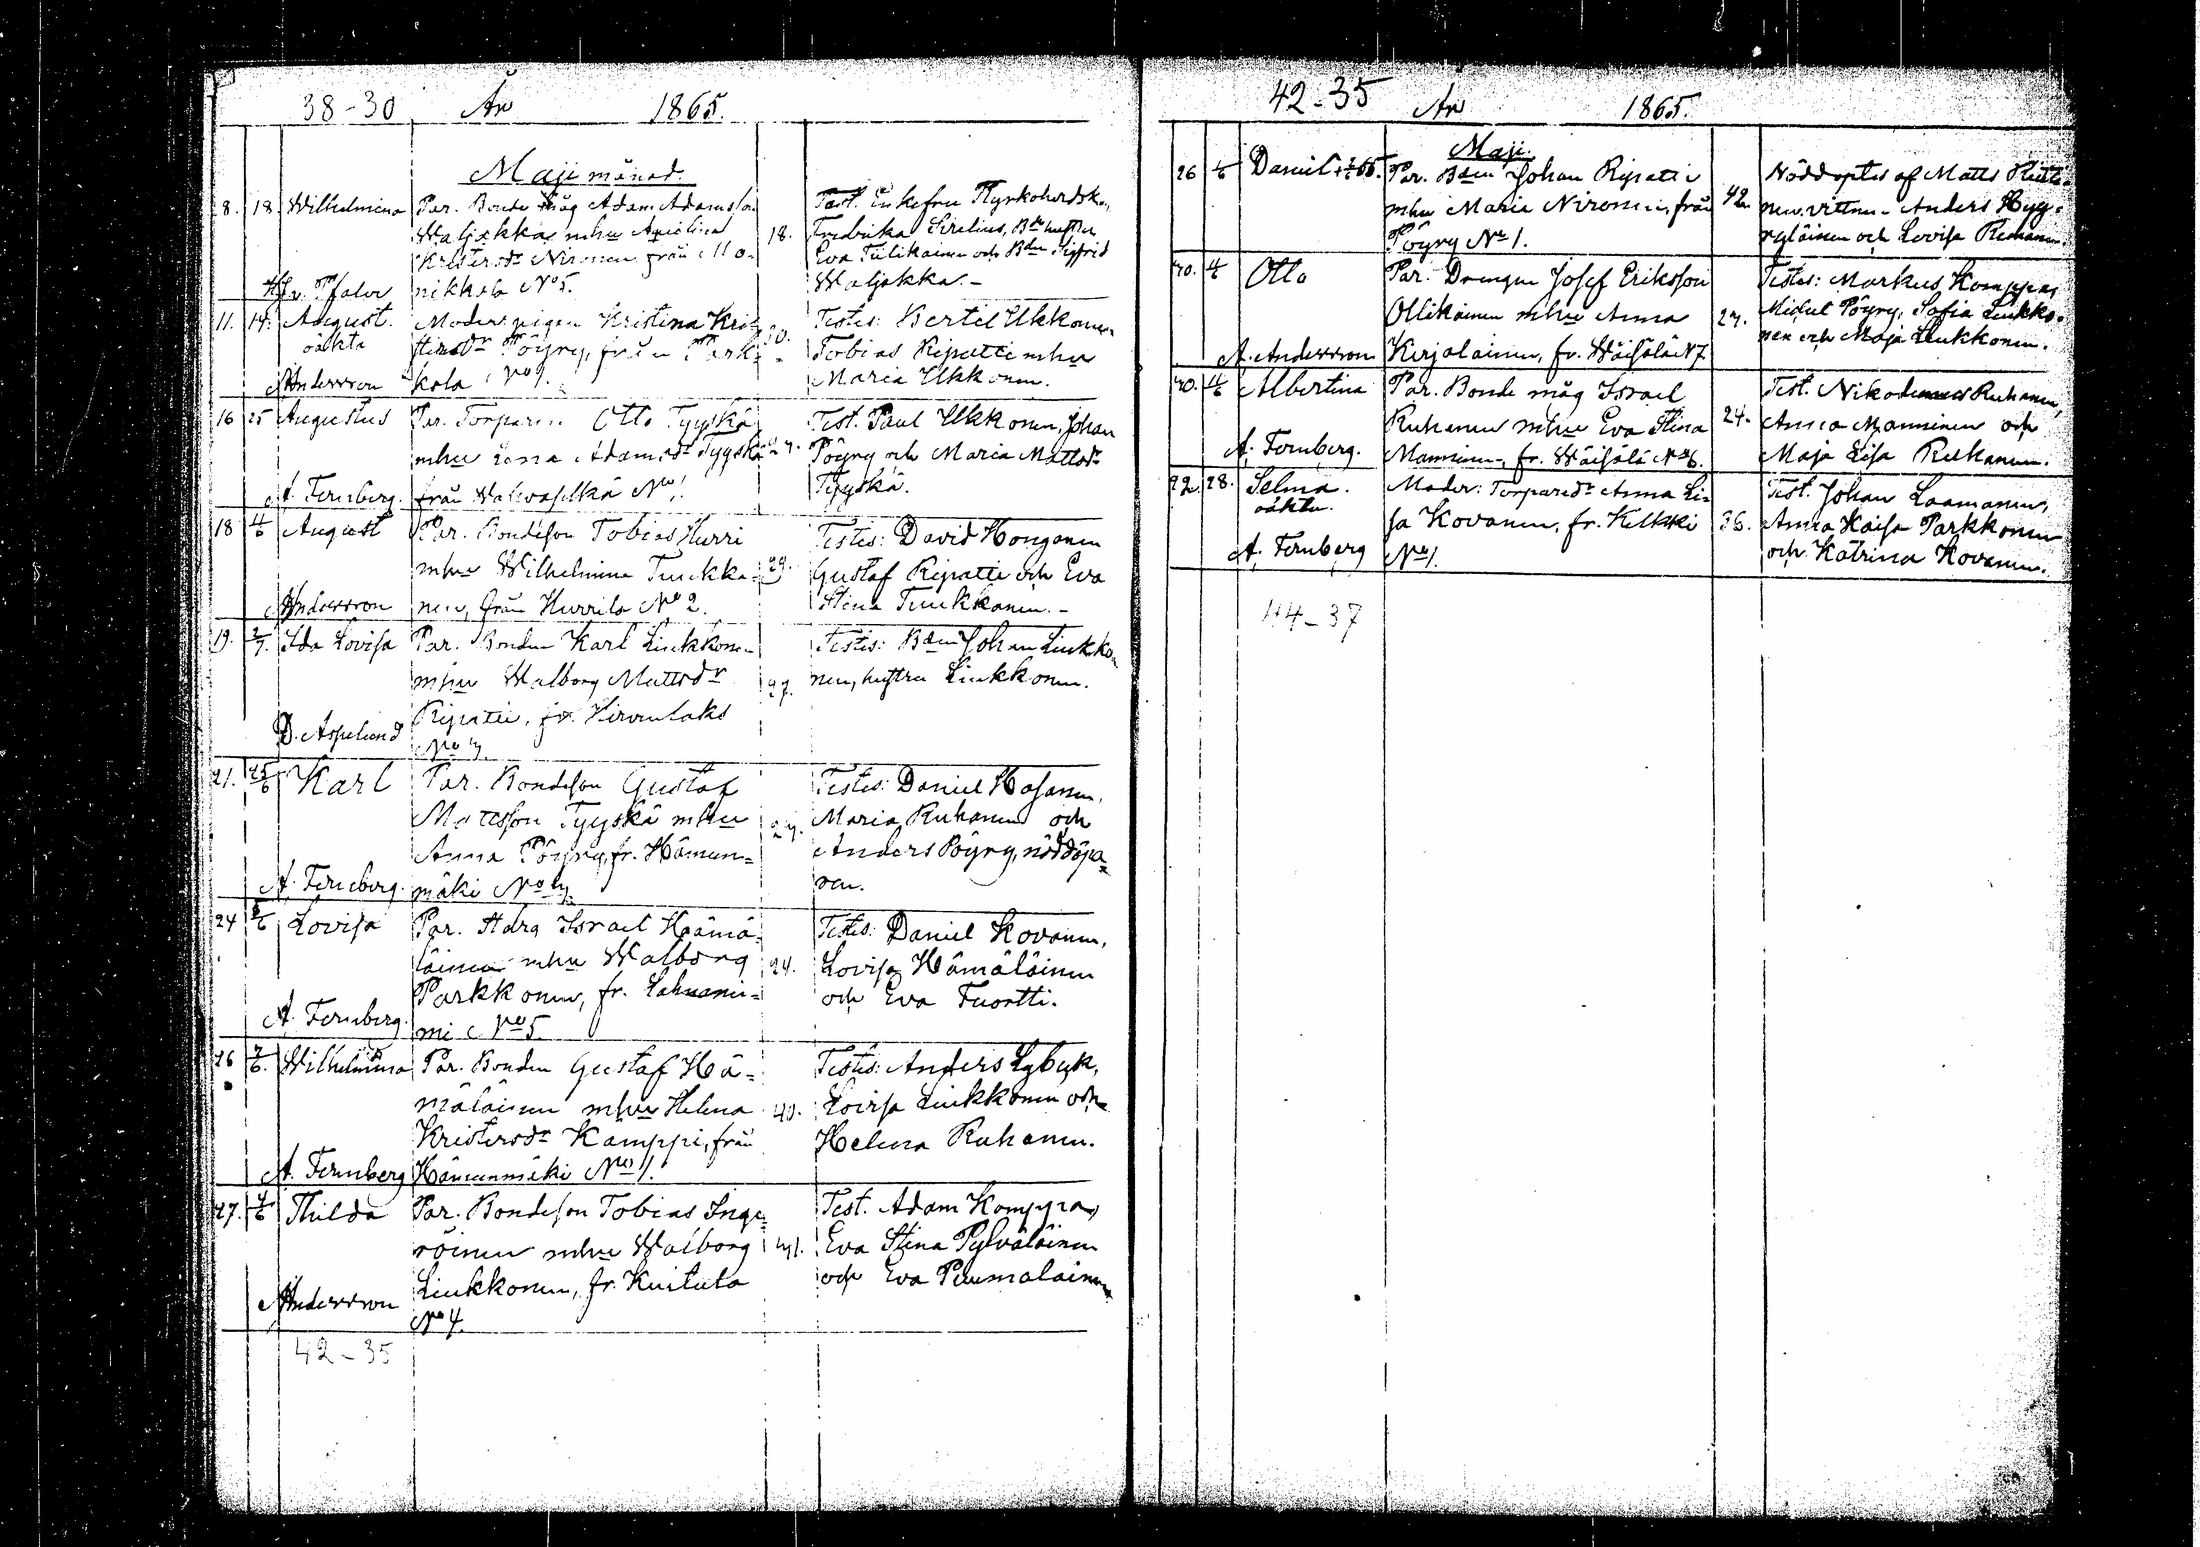 38-30 År 1865.
Maji månad.
8. 18. Wilhelmina Par. Bonde måg Adam Adamsson
Waljakka mhu Apolina
Kristersdr Nironen från Mo-
nikkala No 5.
18.
Test. Enkefru Kyrkoherdsk.
Fredrika Sirelius, Bde hustru
Eva Tulikainen och Bden Sigfrid
Waljakka. -
11. 14. August
oäkta
Andersson
Moder: pigan Kristina Kri-
stersdr Pöyry, från Park-
kola No 1.
30.
Testes: Bertel Ukkonen
Tobias Ripatti mhu
Maria Ukkonen.
16 25 Augustus
A. Fernberg.
Par. Torparen Otto Tyyskä
mhu Adamsdr Tyyskä
från No 1.
Test. Paul Ukkonen, Johan
Pöyry och Maria Mattsdr
Tyyskä.
18 4/6 August
Andersson
Par. Bondeson Tobias Hurri
mhu Wilhelmina Tuukka-
nen, från Hurrila No 2.
29.
Testes: David Honganen
Gustaf Ripatti och Eva
Stina Tuukkanen. -
19. 2/7. Ida Lovisa
D. Aspelund
Par. Bonden Karl Liukkonen
mhu Walborg Mattsdr
Ripatti, fr. Hirvenlaks
27.
Testes: Bden Johan Liukko-
nen, hustru Liukkonen.
21. 25/6 Karl
A. Fernberg.
Par. Bondeson Gustaf
Mattsson Tyyskä mhu
Anna Pöyry, fr. Hämen-
mäki
Testes: Daniel Hasanen,
Maria Ruhanen och
Anders Pöyry, nöddöpa-
ren.
24 Lovisa
A. Fernberg.
Par. Israel Hämä-
läinen mhu Walborg
Parkkonen, fr. Lahnanie-
mi No 5.
24.
Testes: Daniel Kovanen,
Lovisa Hämäläinen
och Eva Tuortti.
26 Wilhelmina
A. Fernberg
Par. Bonden Gustaf Hä-
mäläinen mhu Helena
Kristersdr Kamppi, från
Hämenmäki No 1.
40.
Testes: Anders Lybyk,
Lovisa Liukkonen och
Helena Ruhanen.
27. 4/6 Thilda
Andersson
Par. Bondeson Tobias Inge-
röinen mhu Walborg
Liukkonen, fr. Kuitula
No 4.
Test. Adam Komppa,
Eva Stina Pylväläinen
och Eva Puumalainen
42-35
42-35 År 1865.
Maji.
26 4/6 Daniel
Par. Bden Johan Ripatti
mhu Maria Nironen, från
Pöyry No 1.
42.
Nöddöptes af Matts
nen. vittnen Anders Hyy-
ryläinen och Lovisa Ruhanen.
30. 4/6 Otto
A. Andersson
Par. Drengen Josef Eriksson
Ollikainen mhu Anna
Kirjalainen, fr. Wäisälä N 7
27.
Testes: Markus Komppa,
Mickel Pöyry, Sofia Liukko-
nen och Maja Liukkonen.
30. 4/6 Albertina
A. Fernberg.
Par. Bonde måg Israel
Ruhanen mhu Eva Stina
Manninen, fr. Wäisälä No 6.
24.
Test. Nikodemus Ruhanen,
Anna Manninen och
Maja Lisa Ruhanen.
22. 28. Selma.
oäkta.
A. Fernberg
Moder: Torparedr Anna Li-
sa Kovanen, fr. Kilkki
No 1.
36.
Test. Johan Laamanen,
Anna Kaisa Parkkonen
och Katrina Kovanen.
44-37